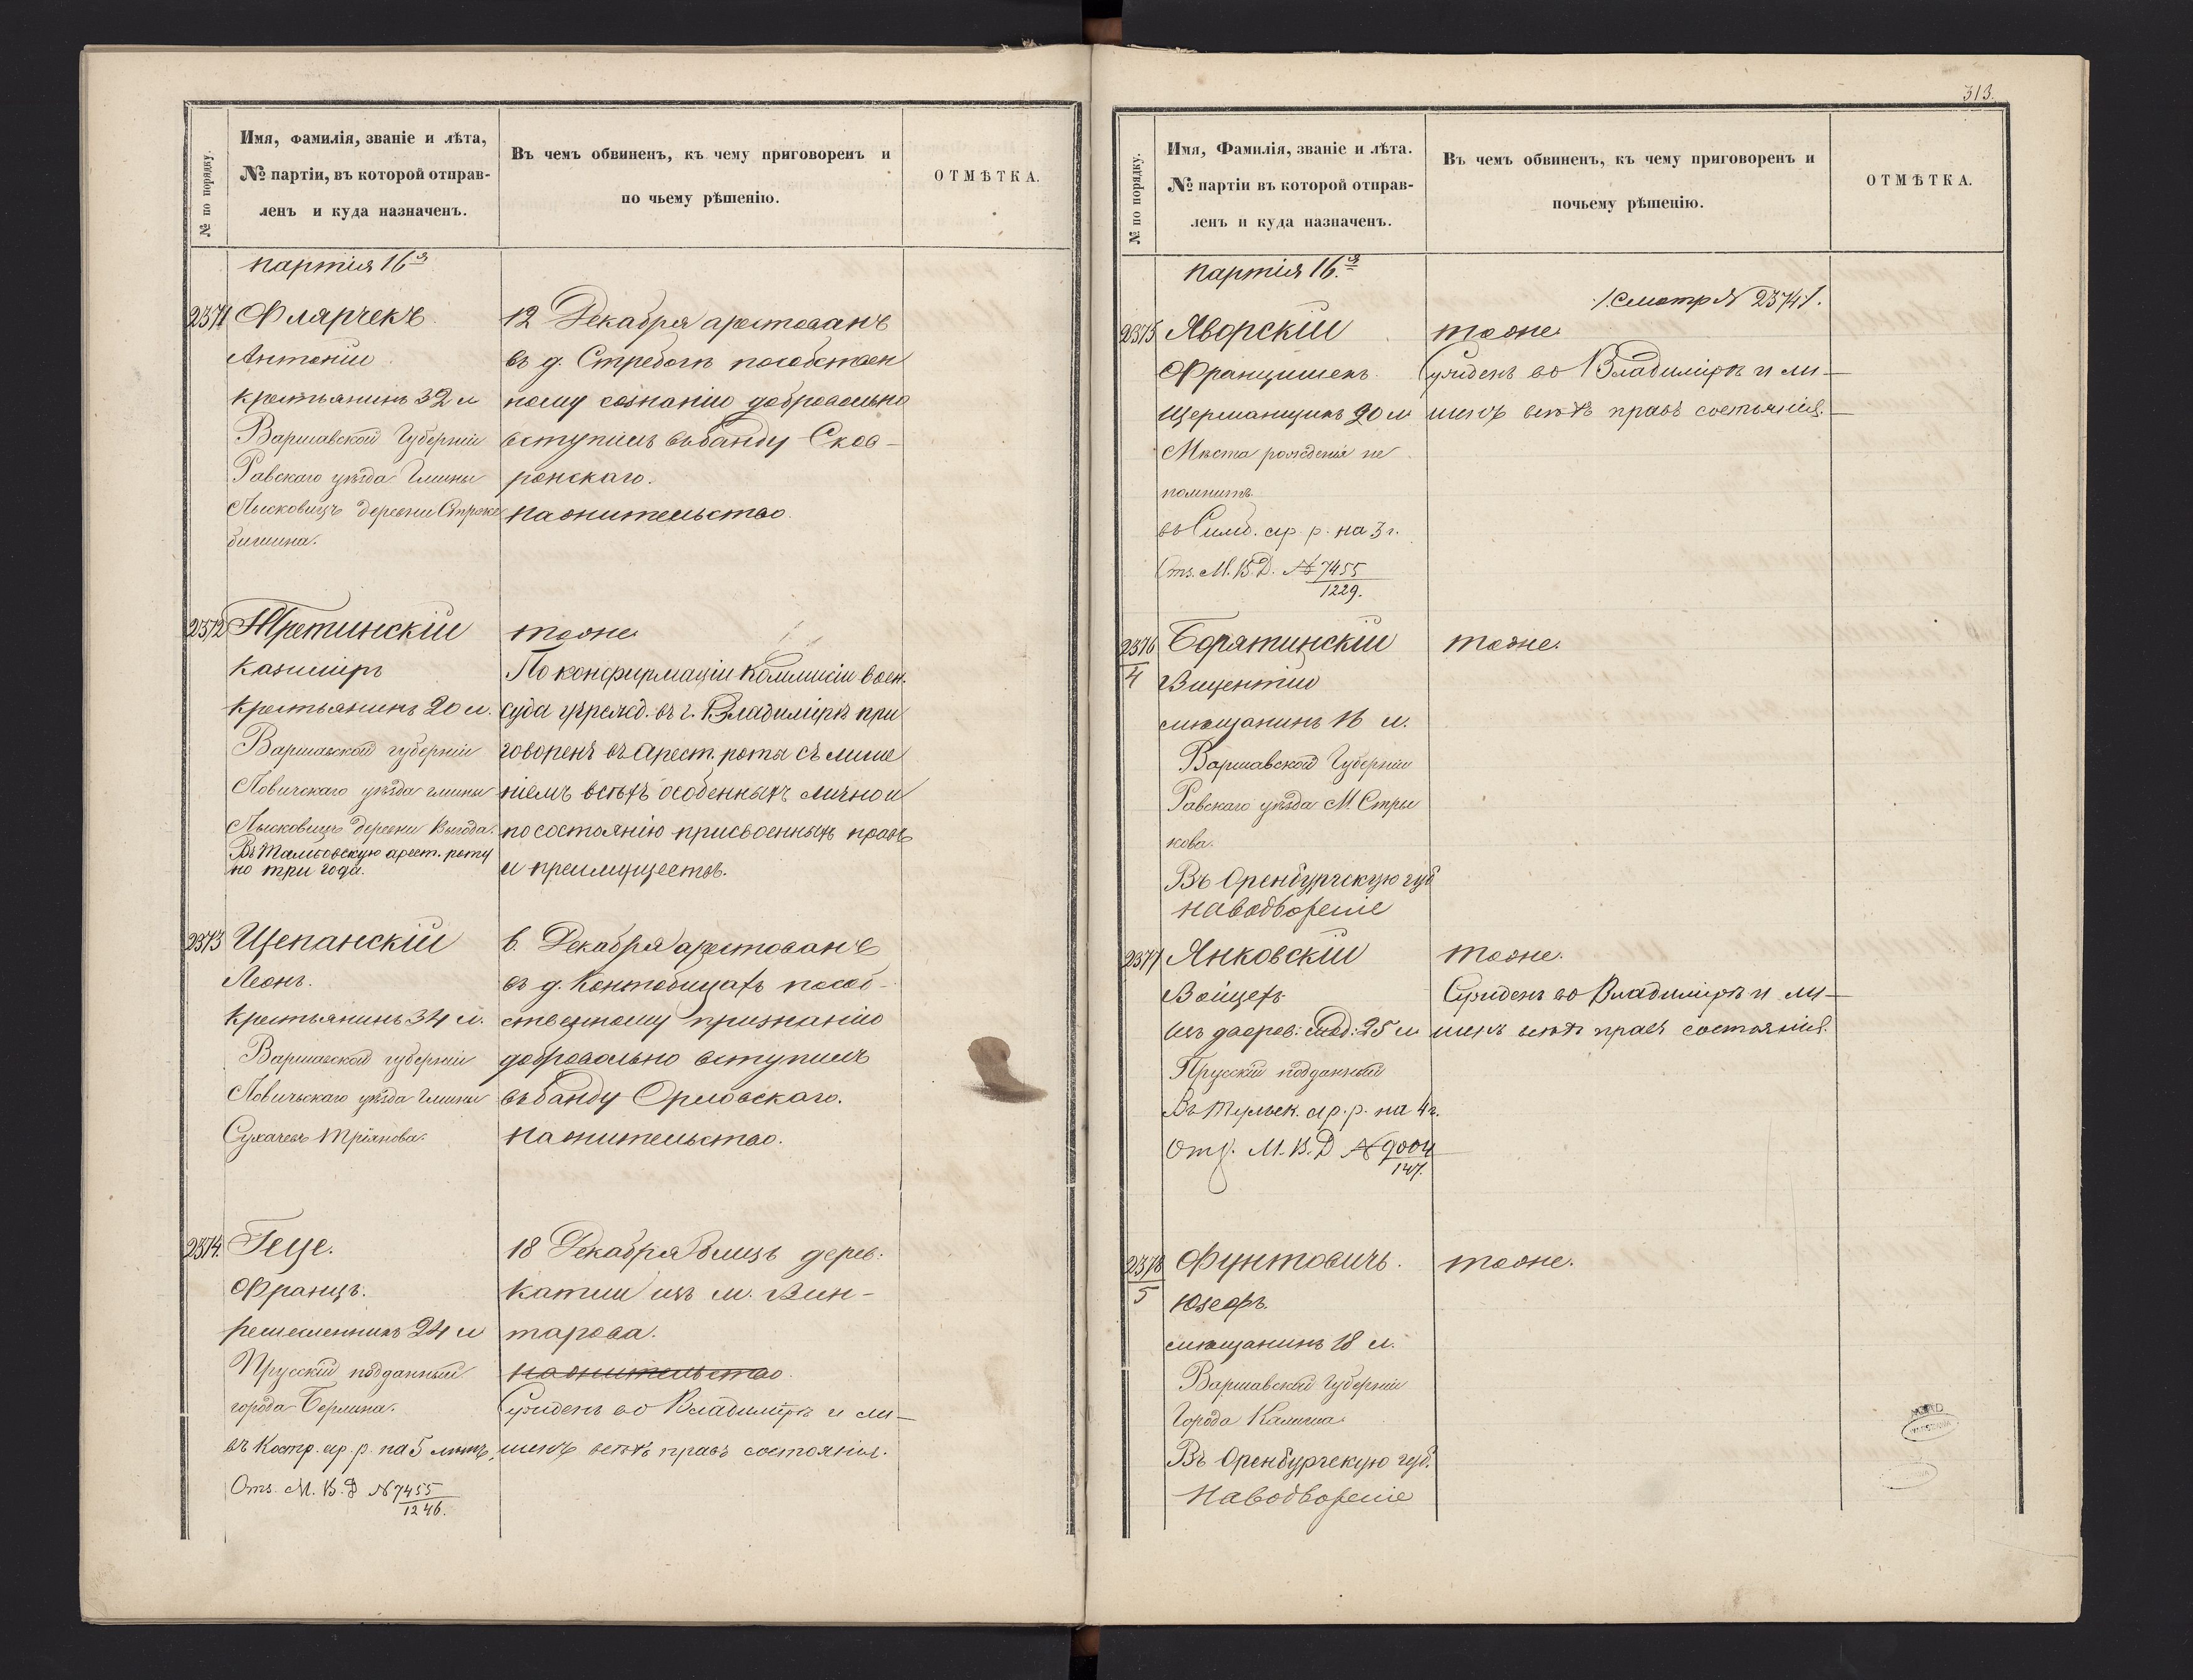 № по порядку.
Имя, фамилія, званіе и лѣта,
№ партіи, въ которой отправ-
ленъ и куда назначенъ.
Въ чемъ обвиненъ, къ чему приговоренъ и
по чьему рѣшенію.
ОТМѢТКА.
партія 16я
2371 Флярчекъ
Антоній
крестьянинъ 32 л
Варшавской Губерніи
Равскаго уѣзда Гмины
Лысковицъ деревни
12 Декабря арестованъ
въ д. пособствен
ному сознанію добровольно
вступилъ въ банду Скав-
ронскаго.
на жительство.
2372
Казиміръ
крестьянинъ 20 л.
Варшавской губерніи
Ловичскаго уѣзда гмины
Лысковицъ деревни Выгода.
Въ Тамбовскую арест. роту
на три года.
тоже
По конфирмаціи Коммисіи воен.
суда учрежд. въ г. Владимірѣ при
говоренъ въ Арест. роты съ лише
ніемъ всѣхъ особенныхъ лично и
по состоянію присвоенныхъ правъ
и преимуществъ.
2373 Щепанскій
Леонъ.
крестьянинъ 34 л.
Варшавской губерніи
Ловичьскаго уѣзда Гмины
6. Декабря арестованъ
въ д. пособ-
ственному признанію
добровольно вступилъ
въ банду Орловскаго.
на жительство.
2374. Геце.
Францъ.
ремесленникъ 24 л
Прусскій подданный
города Берлина.
въ Костр. ар. р. на 5 лѣтъ.
Отз. М. В. Д № 7455
1246.
18 Декабря близъ дерев.
изъ м. Вин-
тарова.
на жительство.
Сужденъ во Владимірѣ и ли-
шенъ всѣхъ правъ состоянія.
313.
№ по порядку.
Имя, Фамилія, званіе и лѣта.
№ партіи въ которой отправ-
ленъ и куда назначенъ.
Въ чемъ обвиненъ, къ чему приговоренъ и
почьему рѣшенію.
ОТМѢТКА.
партія 16.я
/.Смотр № 2374/.
2375 Яворскій
Францишекъ
20 л
Мѣста рожденія не
помнитъ.
въ Симб. ар. р. на 3 г.
Отз. М. В. Д. № 7455
1229.
тоже
Сужденъ во Владимірѣ и ли-
шенъ всѣхъ правъ состоянія.
2376
4
Борятинскій
Вицентій
мѣщанинъ 16 л.
Варшавской Губерніи
Равскаго уѣзда М. Стры
кова.
Въ Оренбургскую губ
на водвореніе
тоже.
2377 Янковскій
Войцехъ
изъ дворов: 25 л
Прусскій подданный
Въ Тульск. ар. р. на 4 г.
Отз. М. В. Д № 9004
147.
тоже.
Сужденъ во Владимірѣ и ли-
шенъ всѣхъ правъ состоянія.
2378
5
Фунтовичъ.
Юзефъ.
мѣщанинъ 18 л.
Варшавской Губерніи
Города Калиша.
Въ Оренбургскую губ.
на водвореніе
тоже.